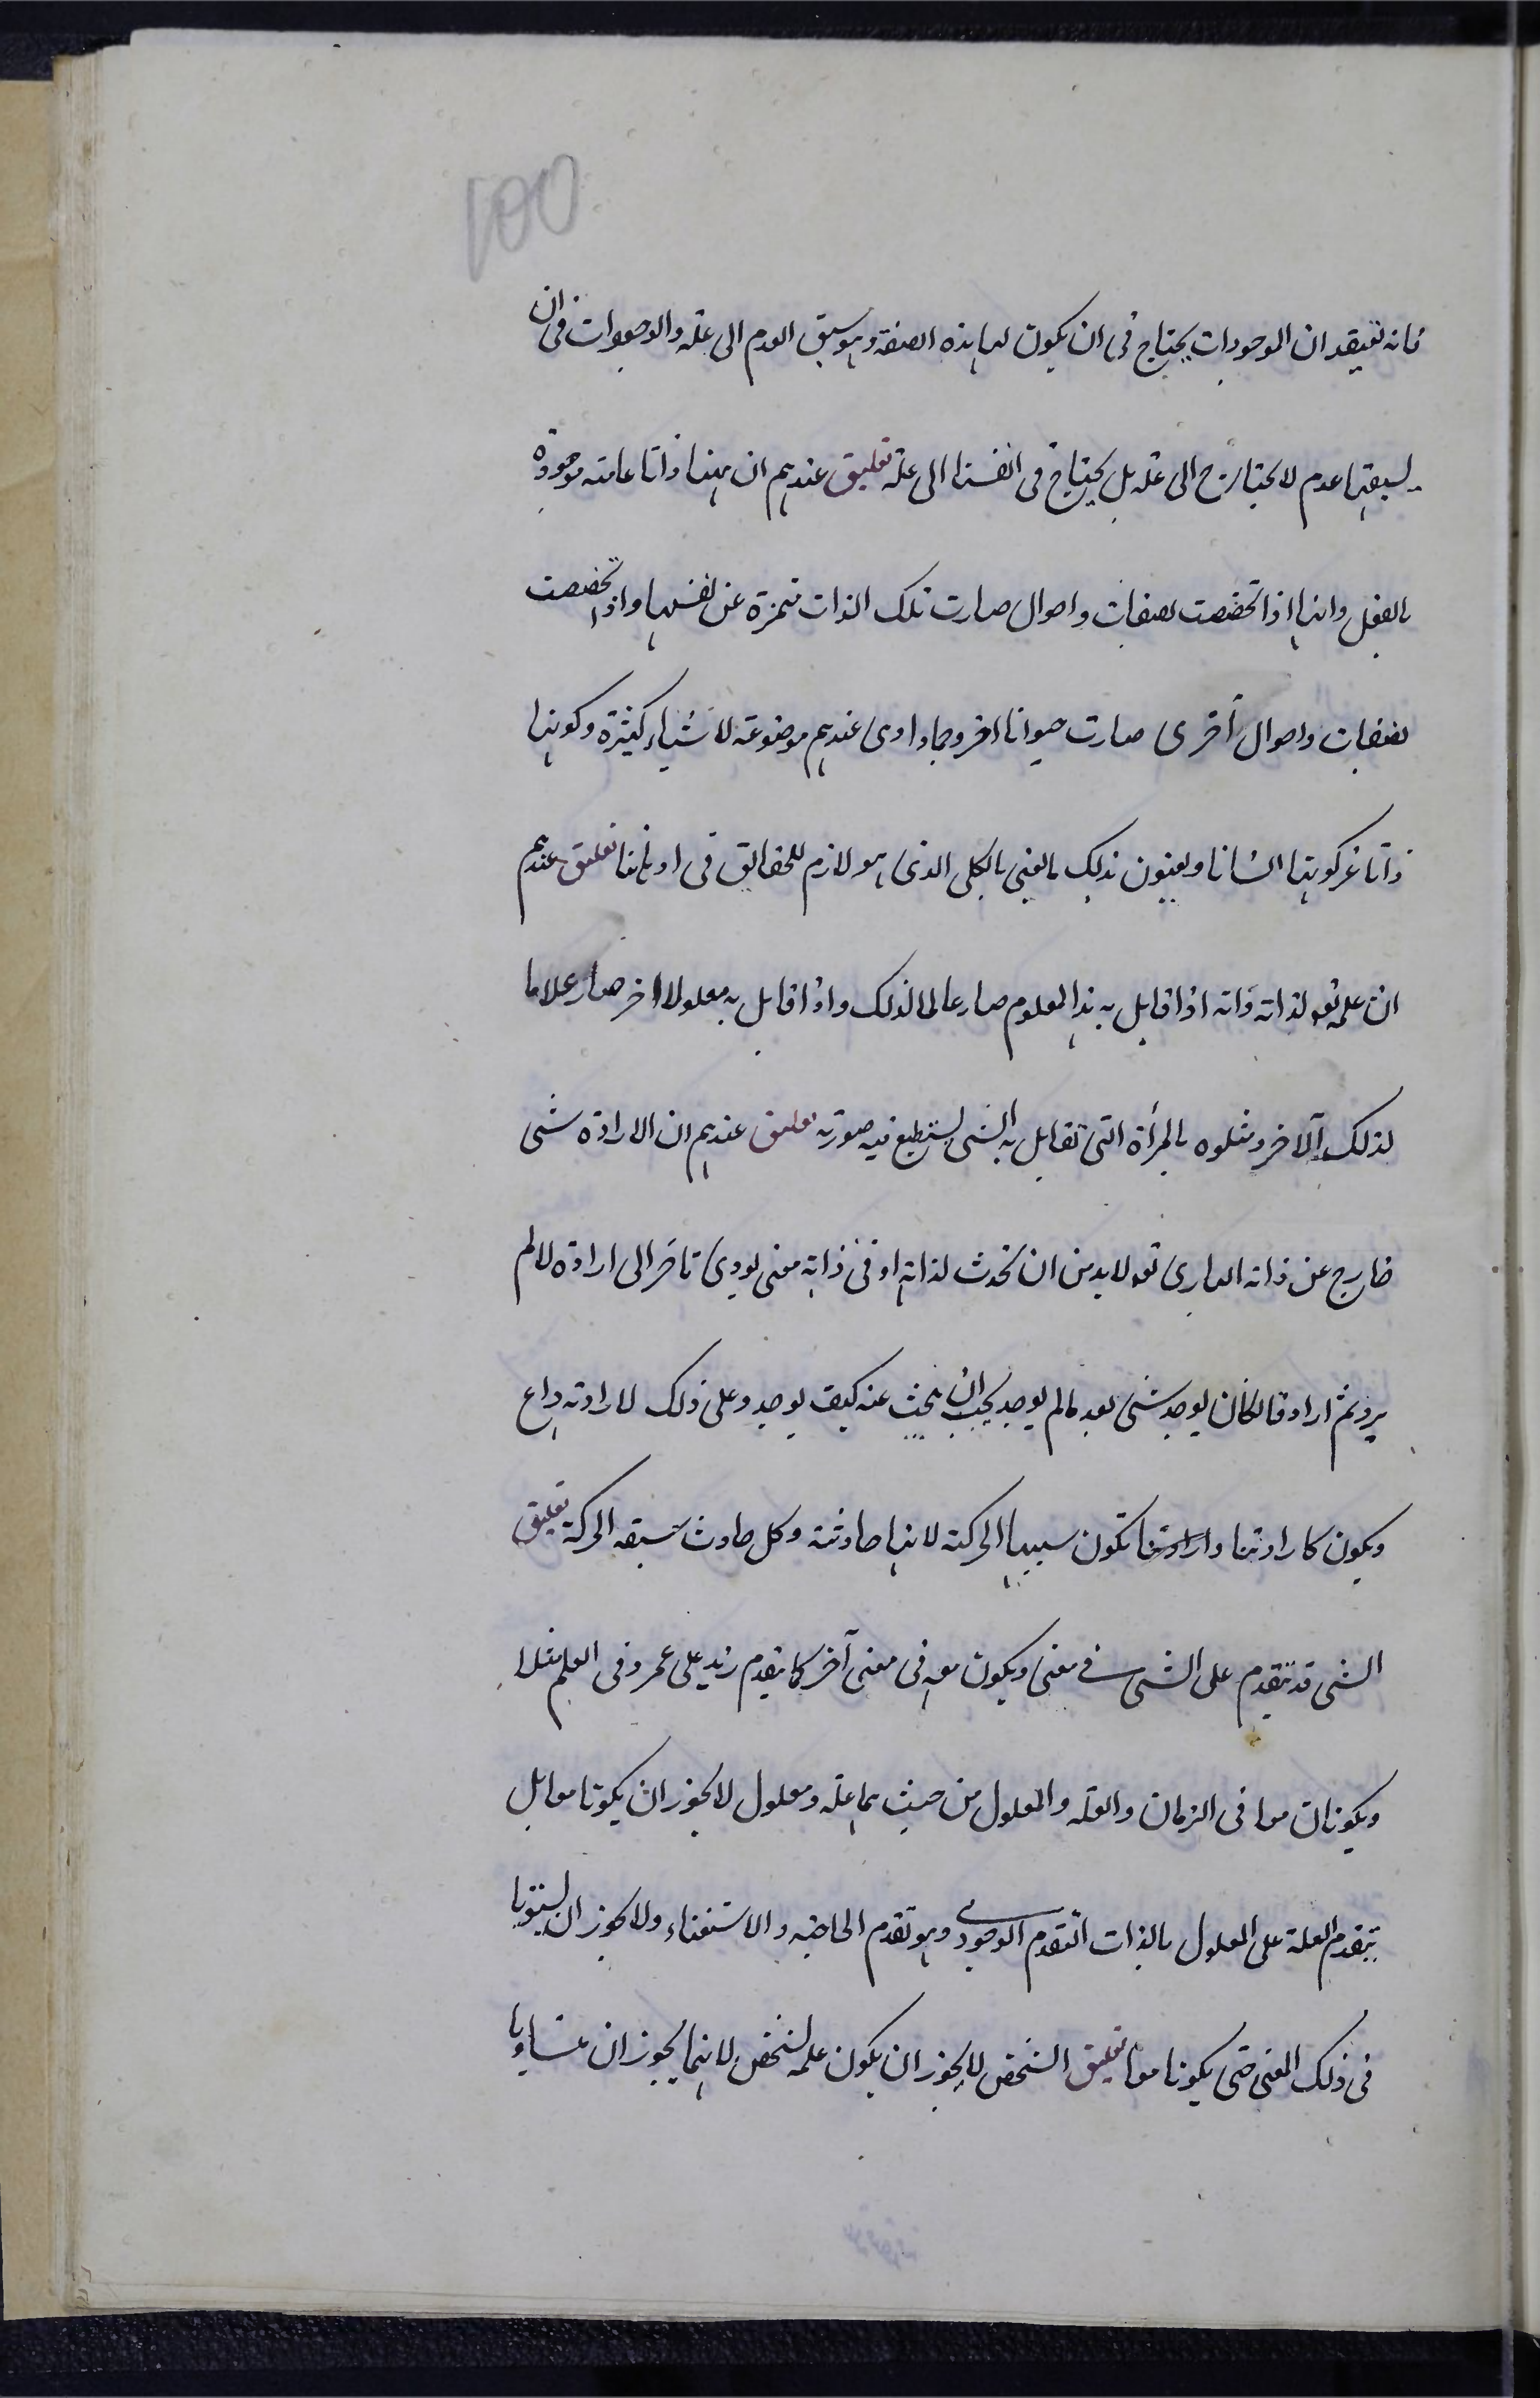 ١٥٥
فانه تعيقد ان الموجودات يحتاج فى ان يكون لها هذه الصفة وهو سبق العدم الى علة والوجودات فى ان
يسبقها عدم لا يحتاج الى علة بل يحتاج فى انفسنا الى علة تعليق عندهم ان هنا ذاتا عامة موجودة
بالفعل وانها اذا تخصصت بصفات واحوال صارت تلك الذات متميزة عن نفسها واذا تخصصت
بصفات واحوال أخرى صارت حيوانا اخر وجمادا وهى عندهم موضوعة لاشياء كثيرة وكونها
ذاتا غير كونها انسانا ويعنون بذلك المعنى الكلى الذى هو لازم للحقائق فى اوهامنا تعليق عندهم
ان علمه تعه لذاته وانه اذا قابل به هذا المعلوم صار عالما لذلك واذا قابل به معلولا اخر صار علاما
لذلك الآخر ومثلوه بالمرأة التى تقابل به الشى ينطبع فيه صورته تعليق عندهم ان الارادة شى
خارج عن ذاته البارى تعه لابد من ان تحدث لذاته او فى ذاته معنى يودى تاخر الى ارادة لا لم
يرد ثم اراد فالمكان يوجد شى بعد مالم يوجد يجب ان يبحث عنه كيف يوجد وعلى ذلك لارادته داع
ويكون كارادتنا وارادتنا تكون سببها الحركة لانها حادثة وكل حادث سبقه الحركة تعليق
الشى قد يتقدم على الشى فى معنى ويكون معه فى معنى آخر كما يتقدم زيد على عمرو فى العلم مثلا
ويكونان معا فى الزمان والعلة والمعلول من حيث هما علة ومعلول لا يجوز ان يكونا معا بل
يتقدم العلة على المعلول بالذات التقدم الوجودى وهو تقدم الحاجة والاستغناء ولا يجوز ان يستويا
فى ذلك المعنى حتى يكونا معا تعليق الشخص لا يجوز ان يكون علة لشخص لانهما يجوز ان يتساويا